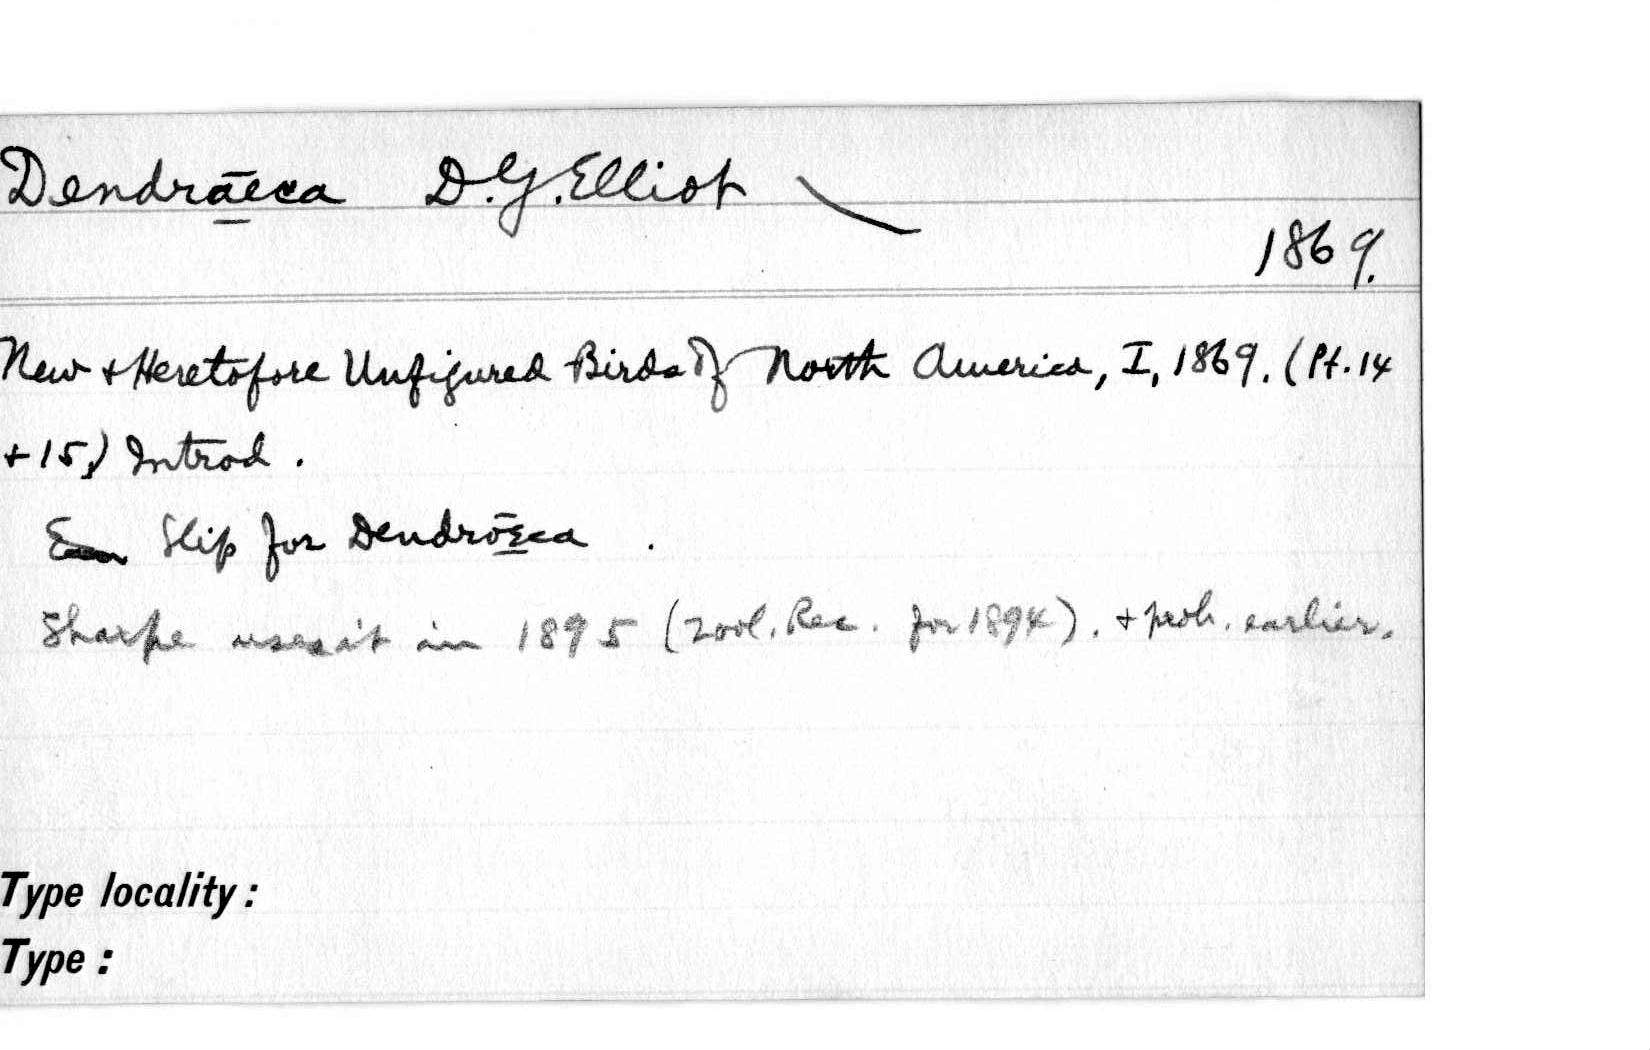 Dendraeca D.G. Elliot
1869.
New & Heretofore Unfigured Birds of North America, I, 1869. (Pt. 14
+ 15,) Introd.
Slip for Dendroeca.
Sharpe uses it in 1895 (Zool. Rec. for 1894). & prob. earlier.
Type locality:
Type: